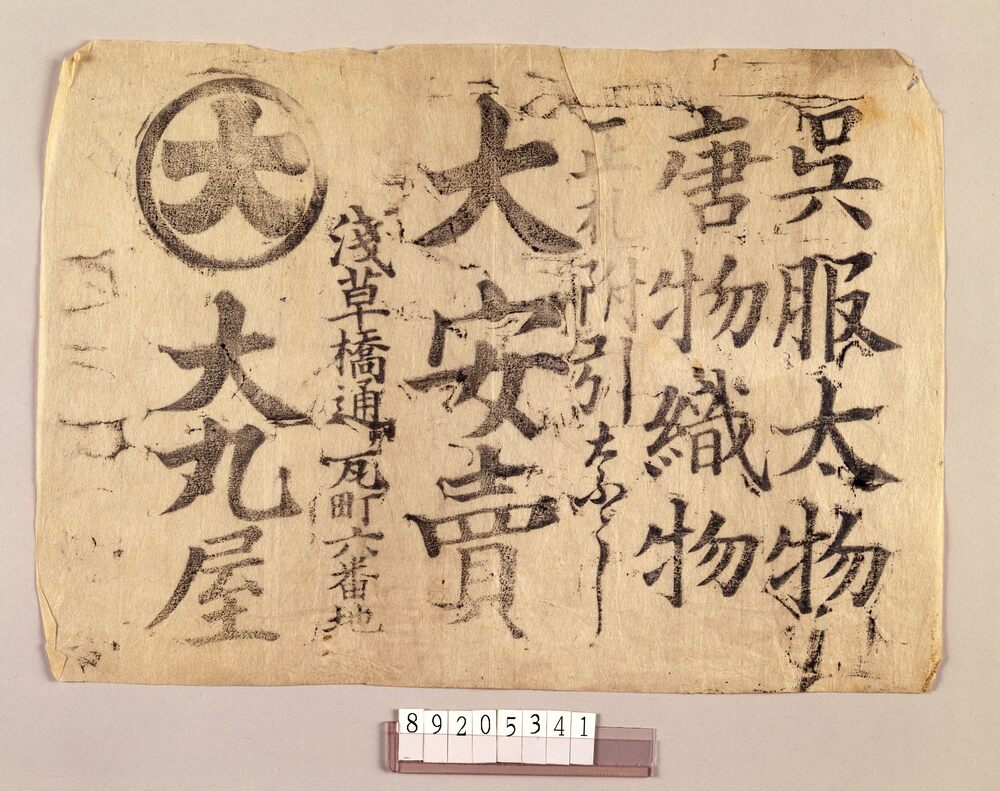 呉服太物
唐物織物
正札附引
大安賣
淺草橋通
瓦町六番地
大
大丸屋
89205341